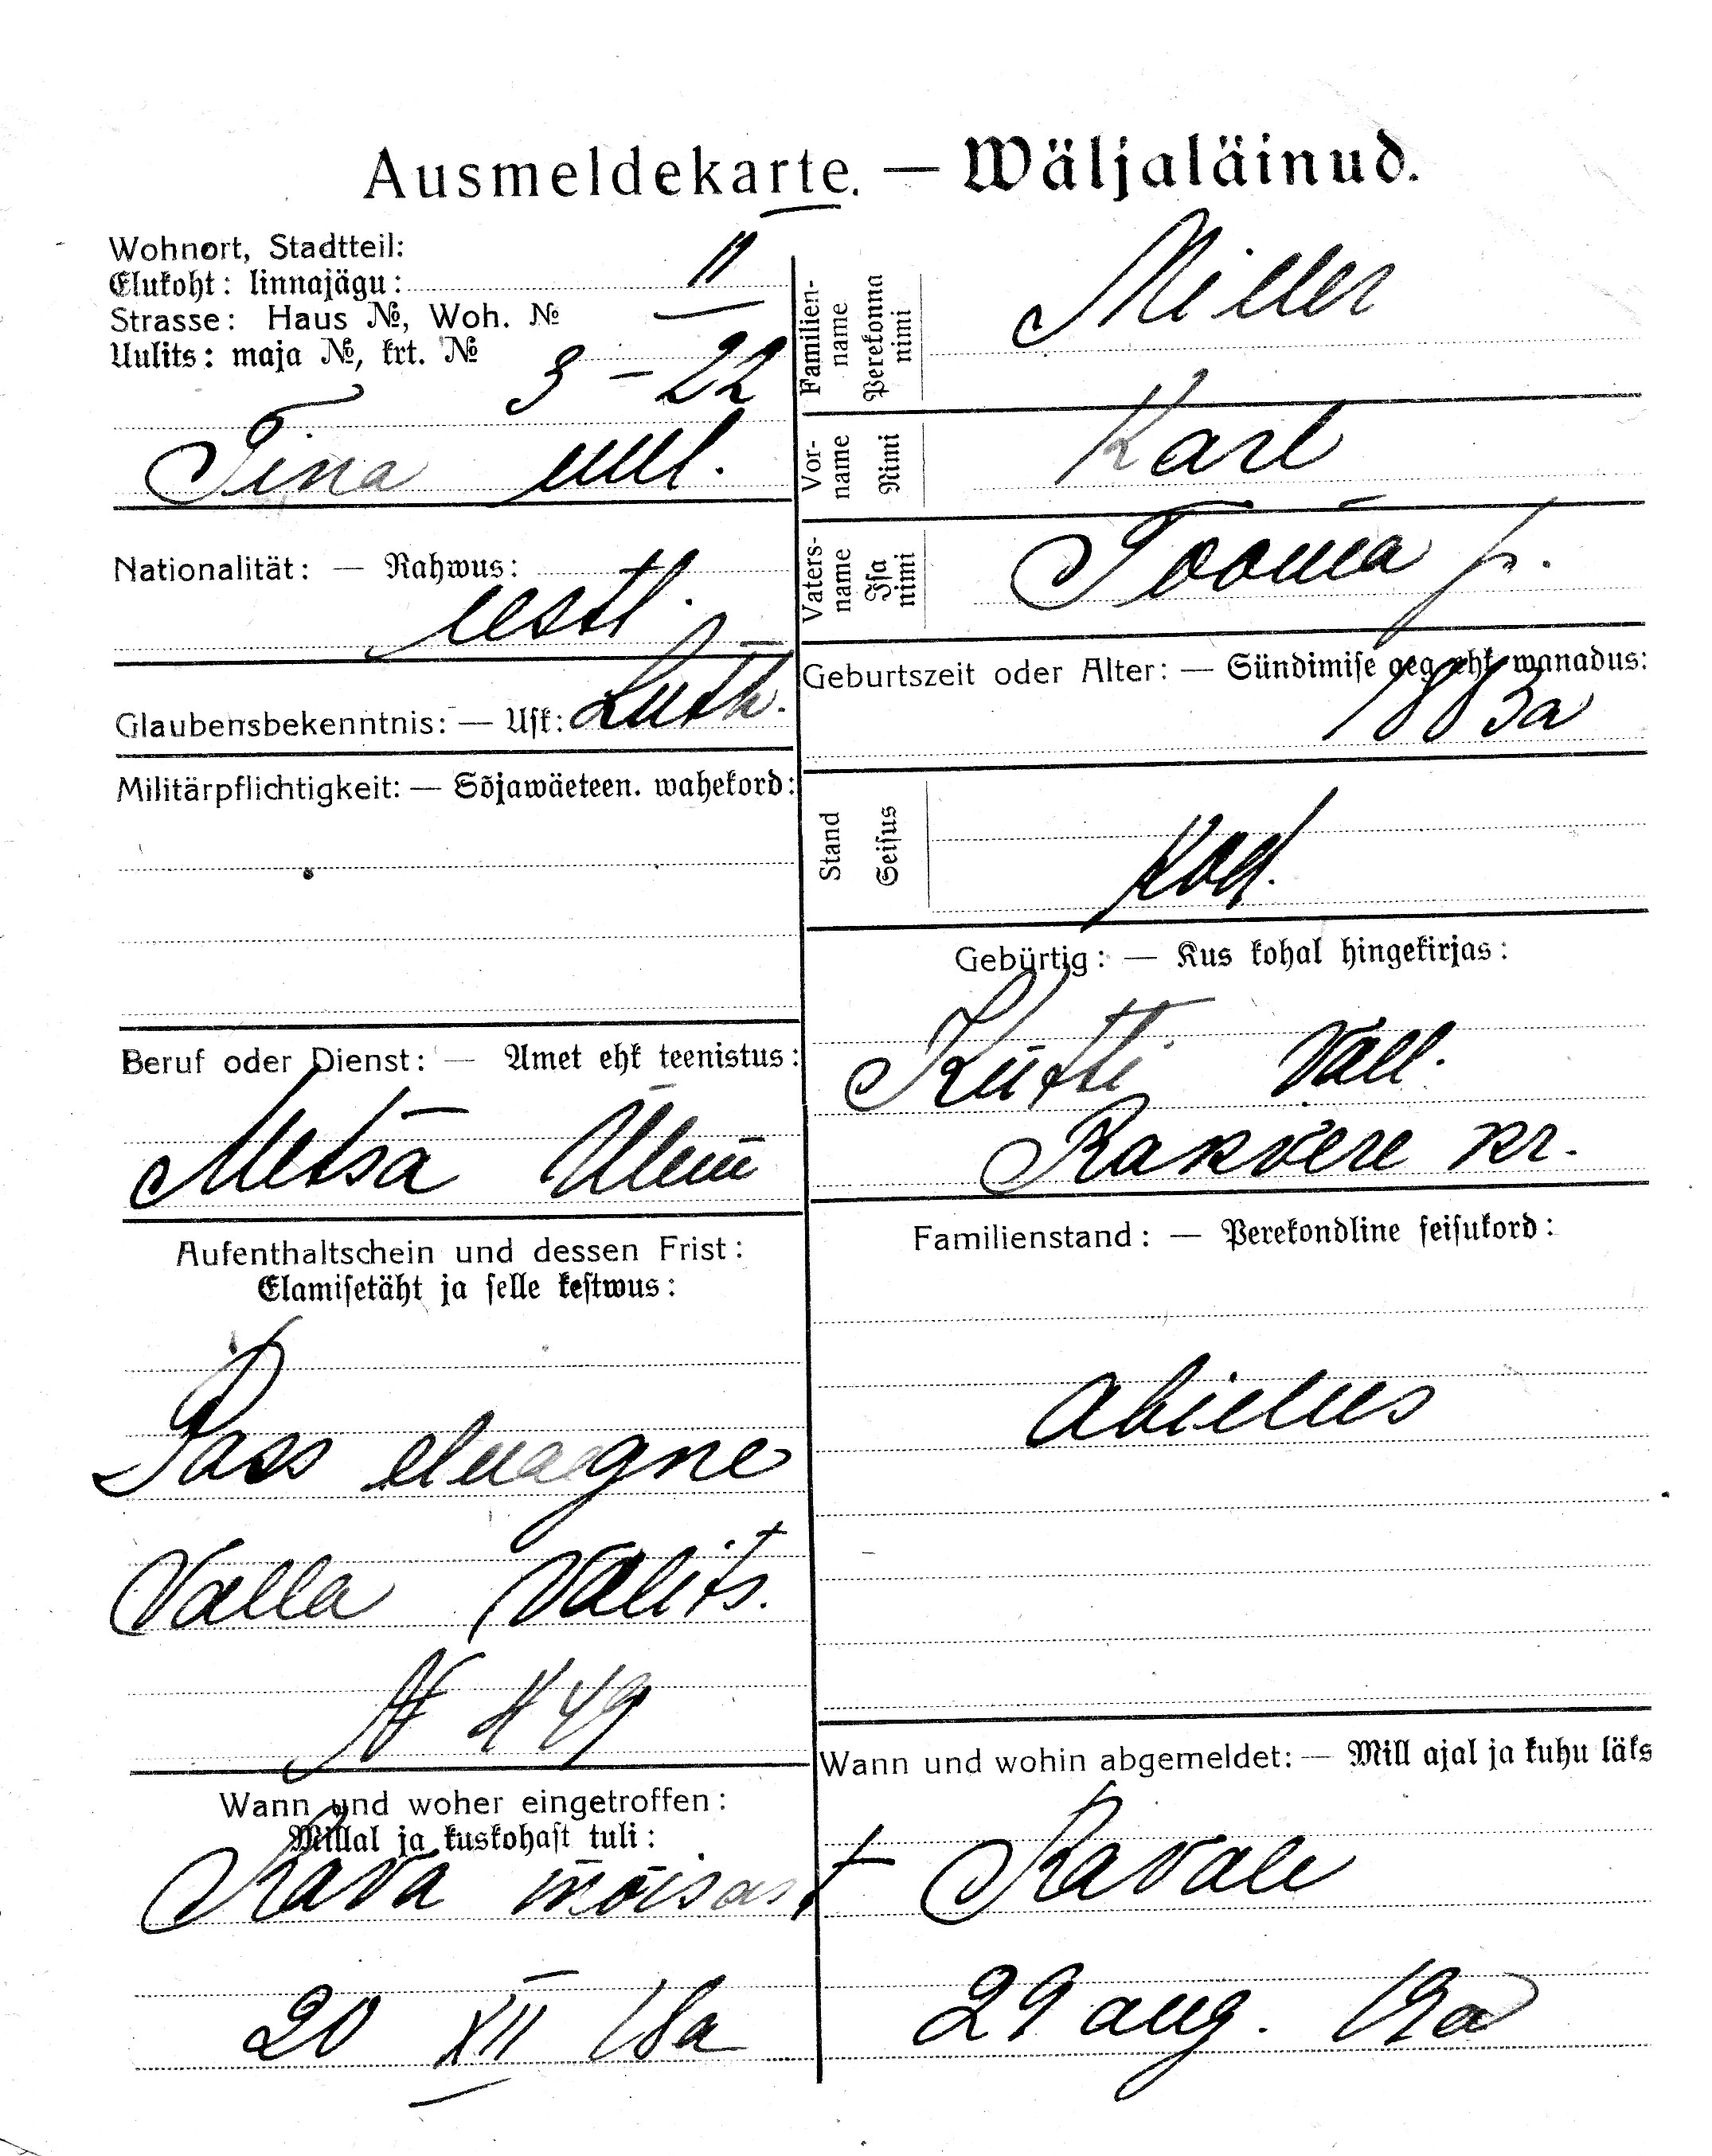 Ausmeldekarte. — Wäljaläinud.
Wohnort, Stadtteil:
Elukoht: linnajägu: II
Strasse: Haus №, Woh. №
Uulits: maja №, krt. № 3 – 22
Tina uul.
Nationalität: — Rahwus:
eestl.
Glaubensbekenntnis: — Usk: Luth.
Militärpflichtigkeit: — Sõjawäeteen. wahekord:
Beruf oder Dienst: — Amet ehk teenistus:
Metsa Ülem
Aufenthaltschein und dessen Frist:
Elamisetäht ja selle kestwus:
Pass
Valla Valits.
N 449
Wann und woher eingetroffen:
Millal ja kuskohast tuli:
Rava mõisast
20 XII 18a
Familien-
name
Perekonna
nimi
Miller
Vor-
name
Nimi
Karl
Vaters-
name
Isa
nimi
Tooma p.
Geburtszeit oder Alter: — Sündimise aeg ehk wanadus:
1883a
Stand
Seisus
kod.
Gebürtig: — Kus kohal hingekirjas:
Küti Vall.
Rakvere kr.
Familienstand: — Perekondline seisukord:
abielus
Wann und wohin abgemeldet: — Mill ajal ja kuhu läks
Ravale
29 aug. 19a